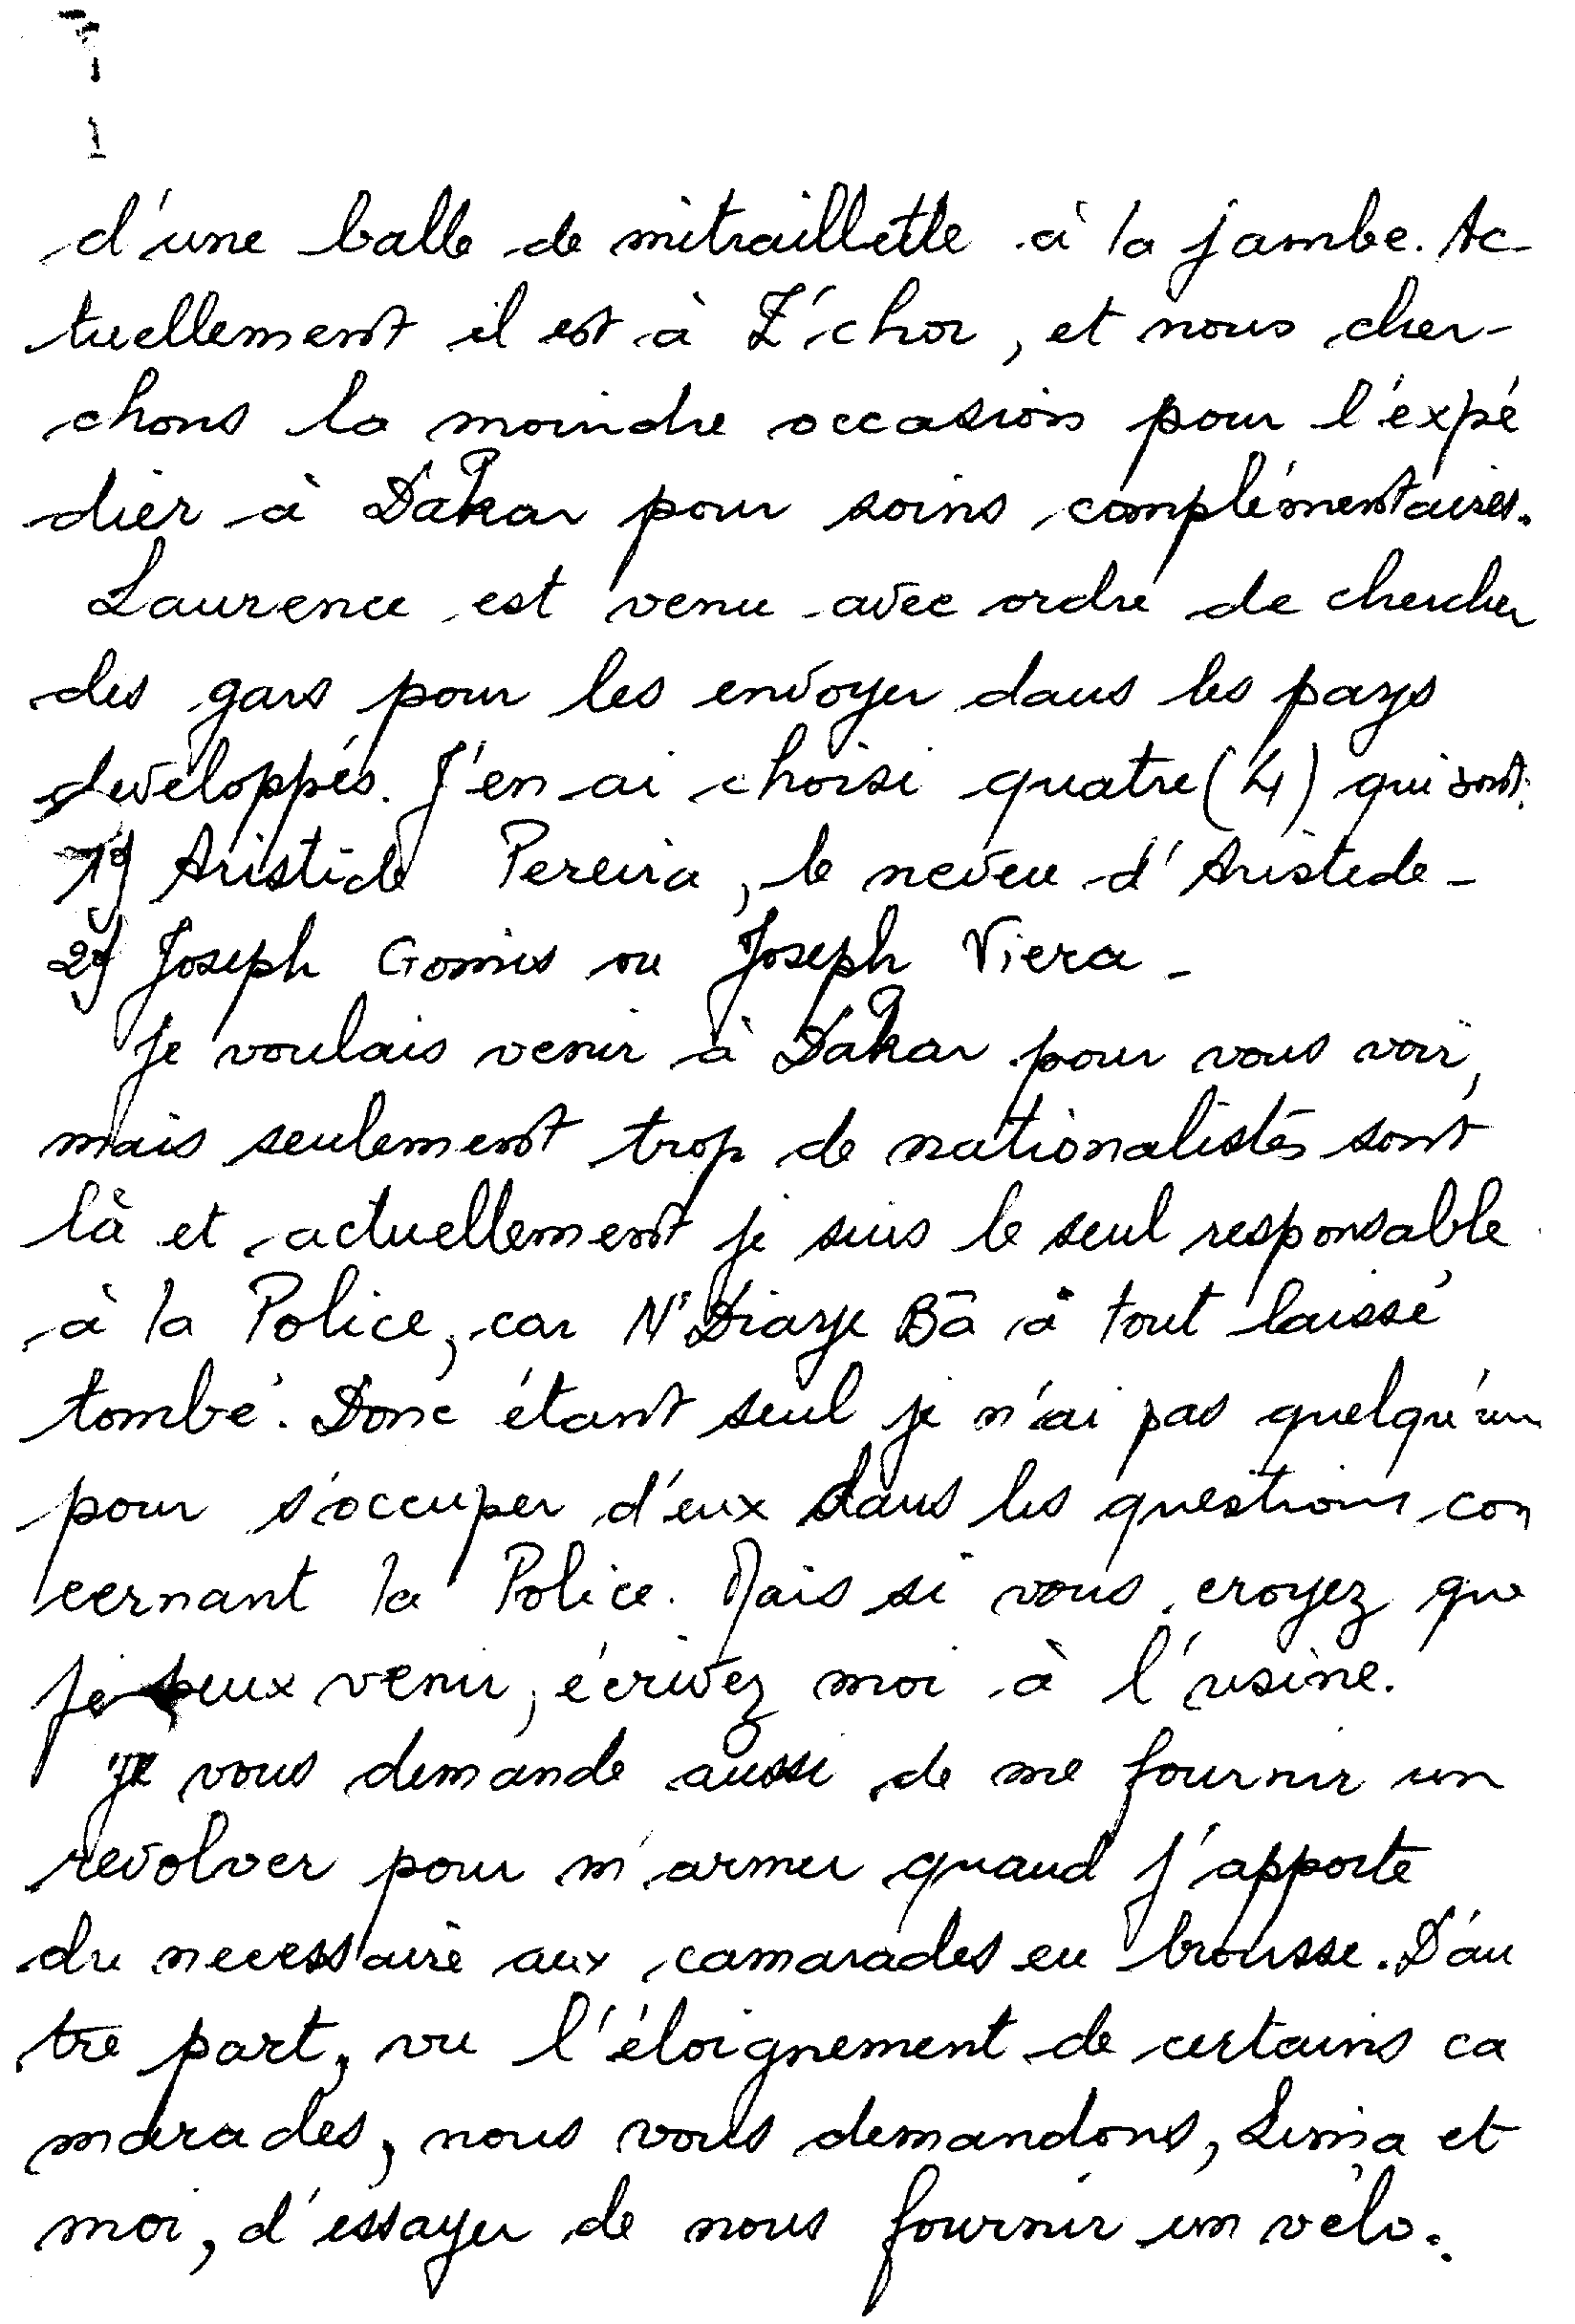 d'une balle de mitraillette à la jambe. Ac-
tuellement il est à Z'chor, et nous cher-
chons la moindre occasion pour l'expé
dier à Dakar pour soins complémentaires.
Laurence est venu avec ordre de chercher
des gars pour les envoyer dans les pays
developpés. J'en ai choisi quatre (4) qui sont:
1º) Aristide Pereira, le neveu d'Aristede -
2º) Joseph Gomis ou Joseph Viera -
Je voulais venir à Dakar pour vous voir,
mais seulement trop de nationalistes sont
là et actuellement je suis le seul responsable
à la Police, car N'Diaye Bâ à tout laissé
tombé. Donc étant seul je n'ai pas quelqu'un
pour s'occuper d'eux dans les questions con
cernant la Police. Mais si vous croyez que
je peux venir, écrivez moi à l'usine.
Je vous demande aussi de me fournir un
revolver pour m'armer quand j'apporte
du necessaire aux camarades en brousse. D'au
tre part, vu l'éloignement de certains ca
marades, nous vous demandons, Lima et
moi, d'essayer de nous fournir un vélo.